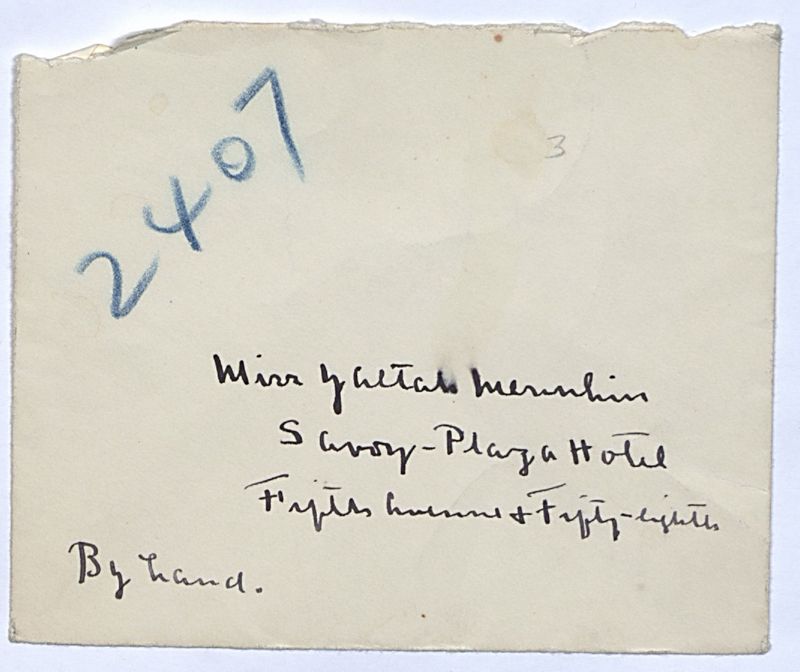 2407
3
Miss Yaltah Menuhin
Savoy-Plaza Hotel
Fifth Avenue & Fifty-eighth
By hand.